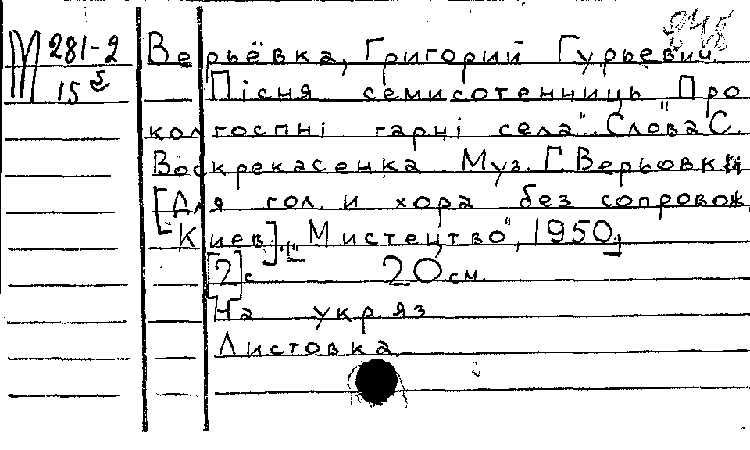 М 281-2
15
Верьёвка, Григорий Гурьевич
Пісня семисотенниць „Про
колгоспні гарні села". Слова С.
Воскрекасенка Муз. Г Верьовки
[Для гол. и хора без сопровож.
Киев]. „Мистецтво", 1950
[2] с 20 см
На укр яз
Листовка